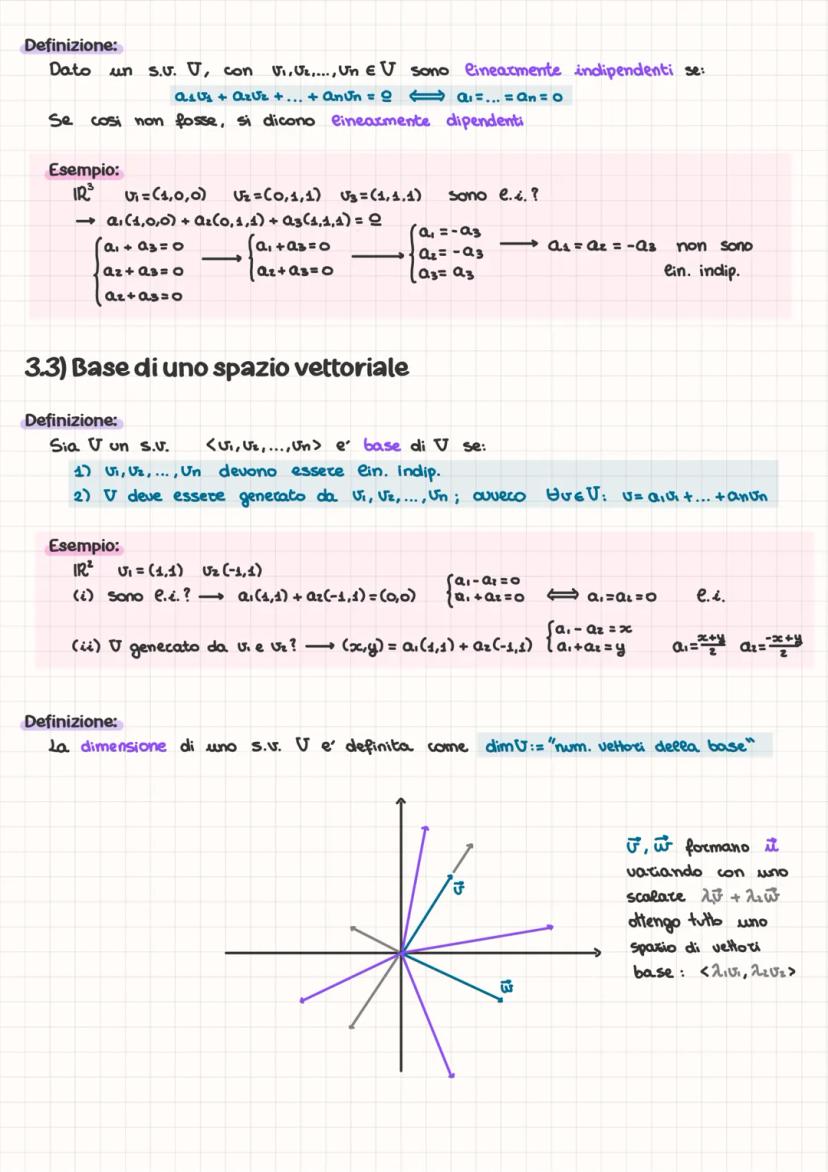 Definizione:
Dato un s.v. V, con v₁,v₂,...,vₙ ∈ V sono linearmente indipendenti se:
a₁v₁ + a₂v₂ + ... + aₙvₙ = 0 ⟺ a₁=...=aₙ=0
Se così non fosse, si dicono linearmente dipendenti
Esempio:
ℝ³ v₁=(1,0,0) v₂=(0,1,1) v₃=(1,1,1) sono l.i.?
→ a₁(1,0,0)+a₂(0,1,1)+a₃(1,1,1)=0
{a₁+a₃=0 → {a₁+a₃=0 → {a₁=-a₃ → a₁=a₂=-a₃ non sono
a₂+a₃=0 a₂+a₃=0 a₂=-a₃ lin. indip.
a₂+a₃=0 a₃=a₃
3.3) Base di uno spazio vettoriale
Definizione:
Sia V un s.v. <v₁,v₂,...,vₙ> e' base di V se:
1) v₁,v₂,...,vₙ devono essere lin. indip.
2) V deve essere generato da v₁,v₂,...,vₙ; ovvero ∀v∈V: v=a₁v₁+...+aₙvₙ
Esempio:
ℝ² v₁=(1,1) v₂(-1,1)
(i) sono l.i.? → a₁(1,1)+a₂(-1,1)=(0,0) {a₁-a₂=0 a₁+a₂=0 ⟺ a₁=a₂=0 l.i.
(ii) V generato da v₁ e v₂? → (x,y)=a₁(1,1)+a₂(-1,1) {a₁-a₂=x a₁+a₂=y a₁=x+y/2 a₂=-x+y/2
Definizione:
La dimensione di uno s.v. V e' definita come dimV:="num. vettori della base"
v⃗
w⃗
v⃗, w⃗ formano u⃗
variando con uno
scalare λv⃗ + λ₂w⃗
ottengo tutto uno
spazio di vettori
base: <λ₁v₁, λ₂v₂>